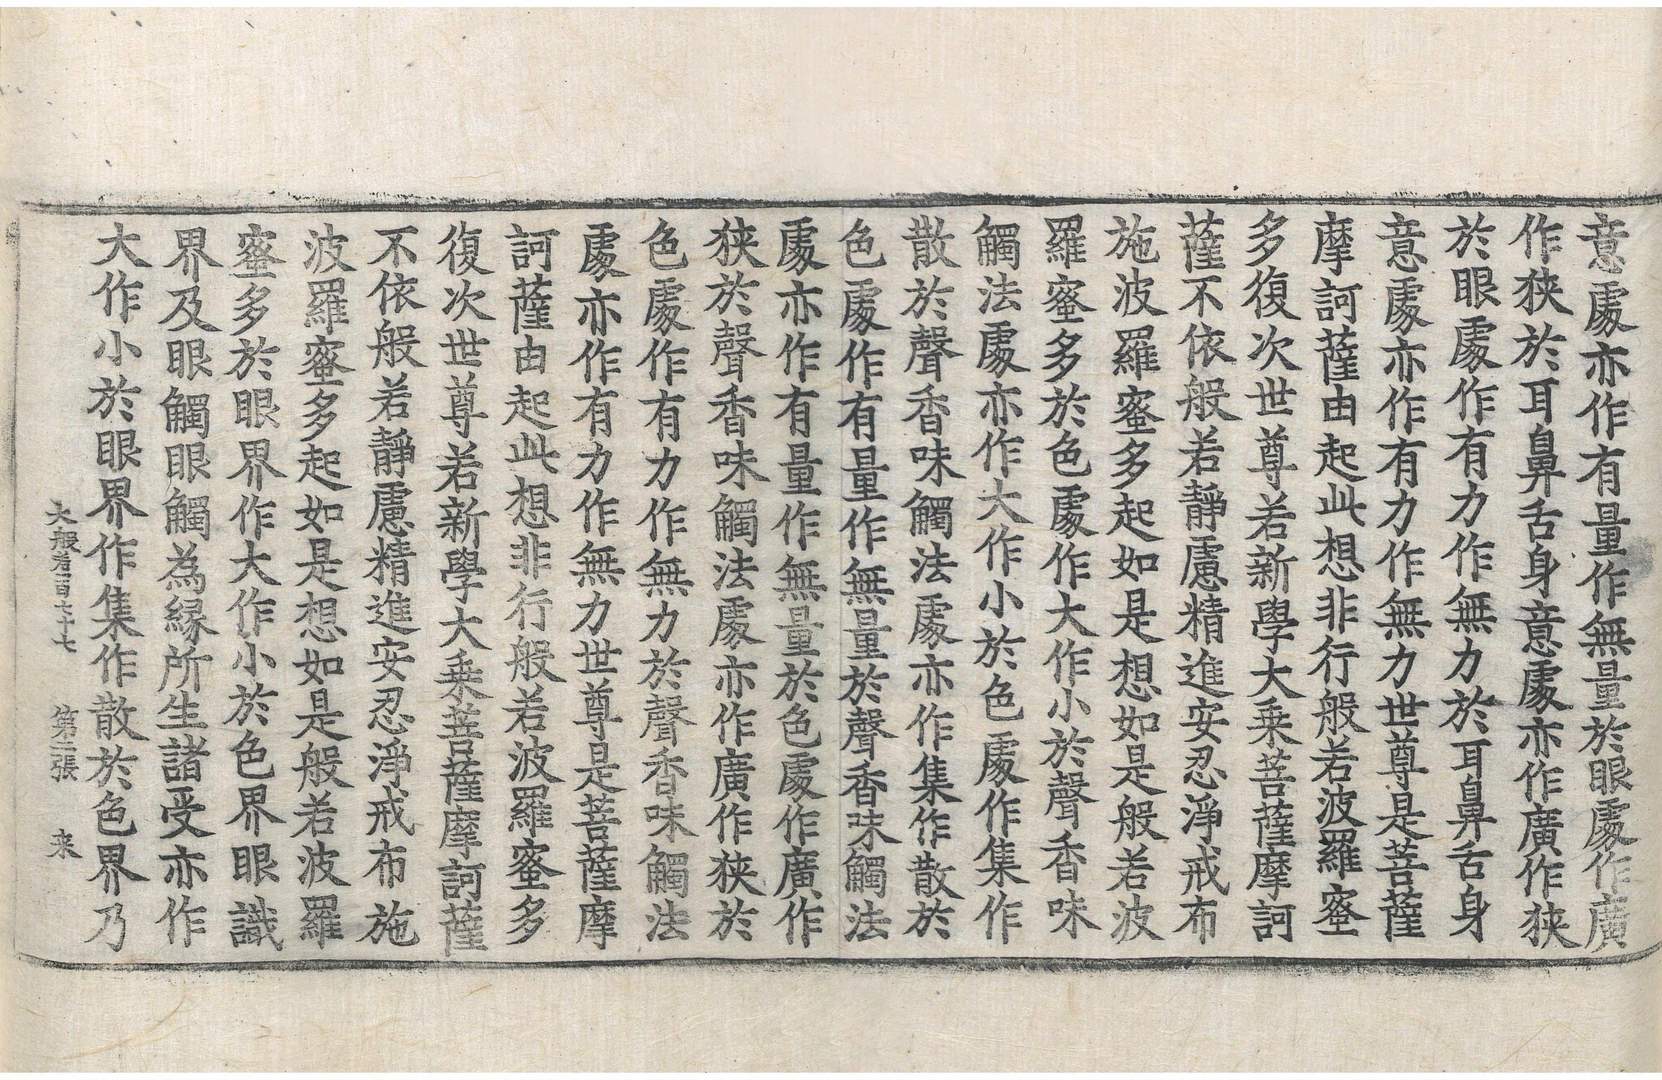 意處亦作有量作無量於眼處作廣
作狭於耳鼻舌身意處亦作廣作狭
於眼處作有力作無力於耳鼻舌身
意處亦作有力作無力世尊是菩薩
摩訶薩由起此想非行般若波羅蜜
多復次世尊若新學大乗菩薩摩訶
薩不依般若靜慮精進安忍淨戒布
施波羅蜜多起如是想如是般若波
羅蜜多於色處作大作小於聲香味
觸法處亦作大作小於色處作集作
散於聲香味觸法處亦作集作散於
色處作有量作無量於聲香味觸法
處亦作有量作無量於色處作廣作
狭於聲香味觸法處亦作廣作狭於
色處作有力作無力於聲香味觸法
處亦作有力作無力世尊是菩薩摩
訶薩由起此想非行般若波羅蜜多
復次世尊若新學大乗菩薩摩訶薩
不依般若靜慮精進安忍淨戒布施
波羅蜜多起如是想如是般若波羅
蜜多於眼界作大作小於色界眼識
界及眼觸眼觸為縁所生諸受亦作
大作小於眼界作集作散於色界乃
大般若百七十七 第二張 来